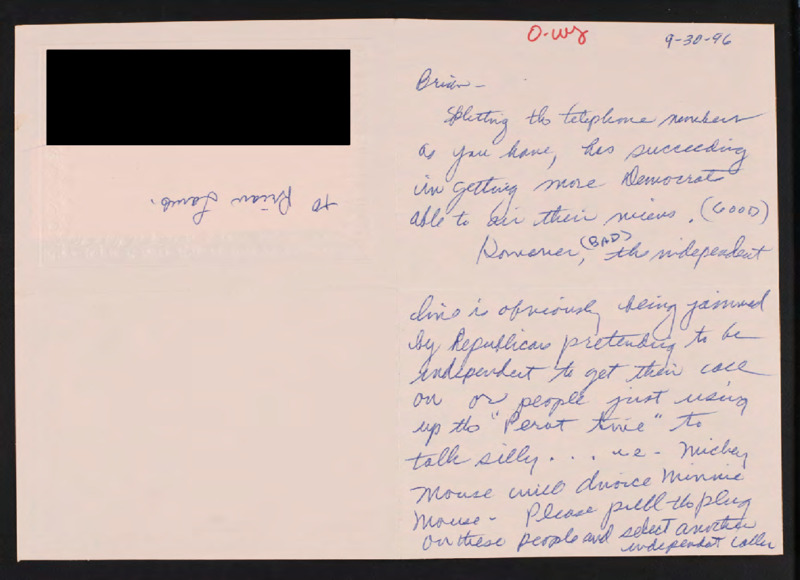 O-wz
9-30-96
Brian -
Splitting the telephone numbers
as you have, has succeeding
in getting more Democrats
able to air their views. (GOOD)
However, (BAD) the independent
line is obviously being jammed
by Republicans pretending to be
independent to get their call
on or people just using
up the "Perot time" to
talk silly... i.e - Mickey
Mouse will divorce Minnie
Mouse - Please pull the plug
on these people and select another
independent caller
to Brian Lamb.